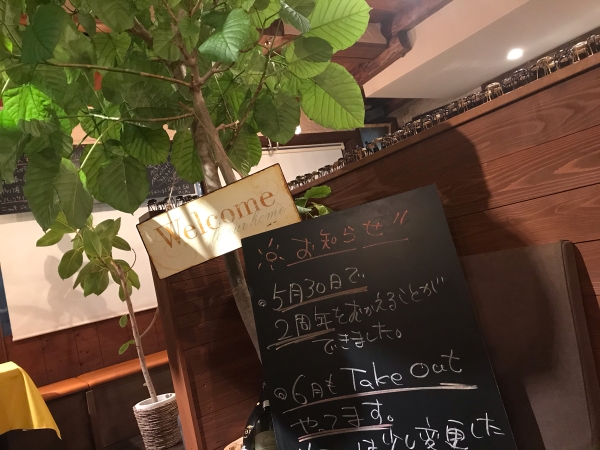 Welcome
※お知らせ!!
◎5月30日で、
2周年をむかえることが
できました。
◎6月も Take Out
やってます。
は少し変更した